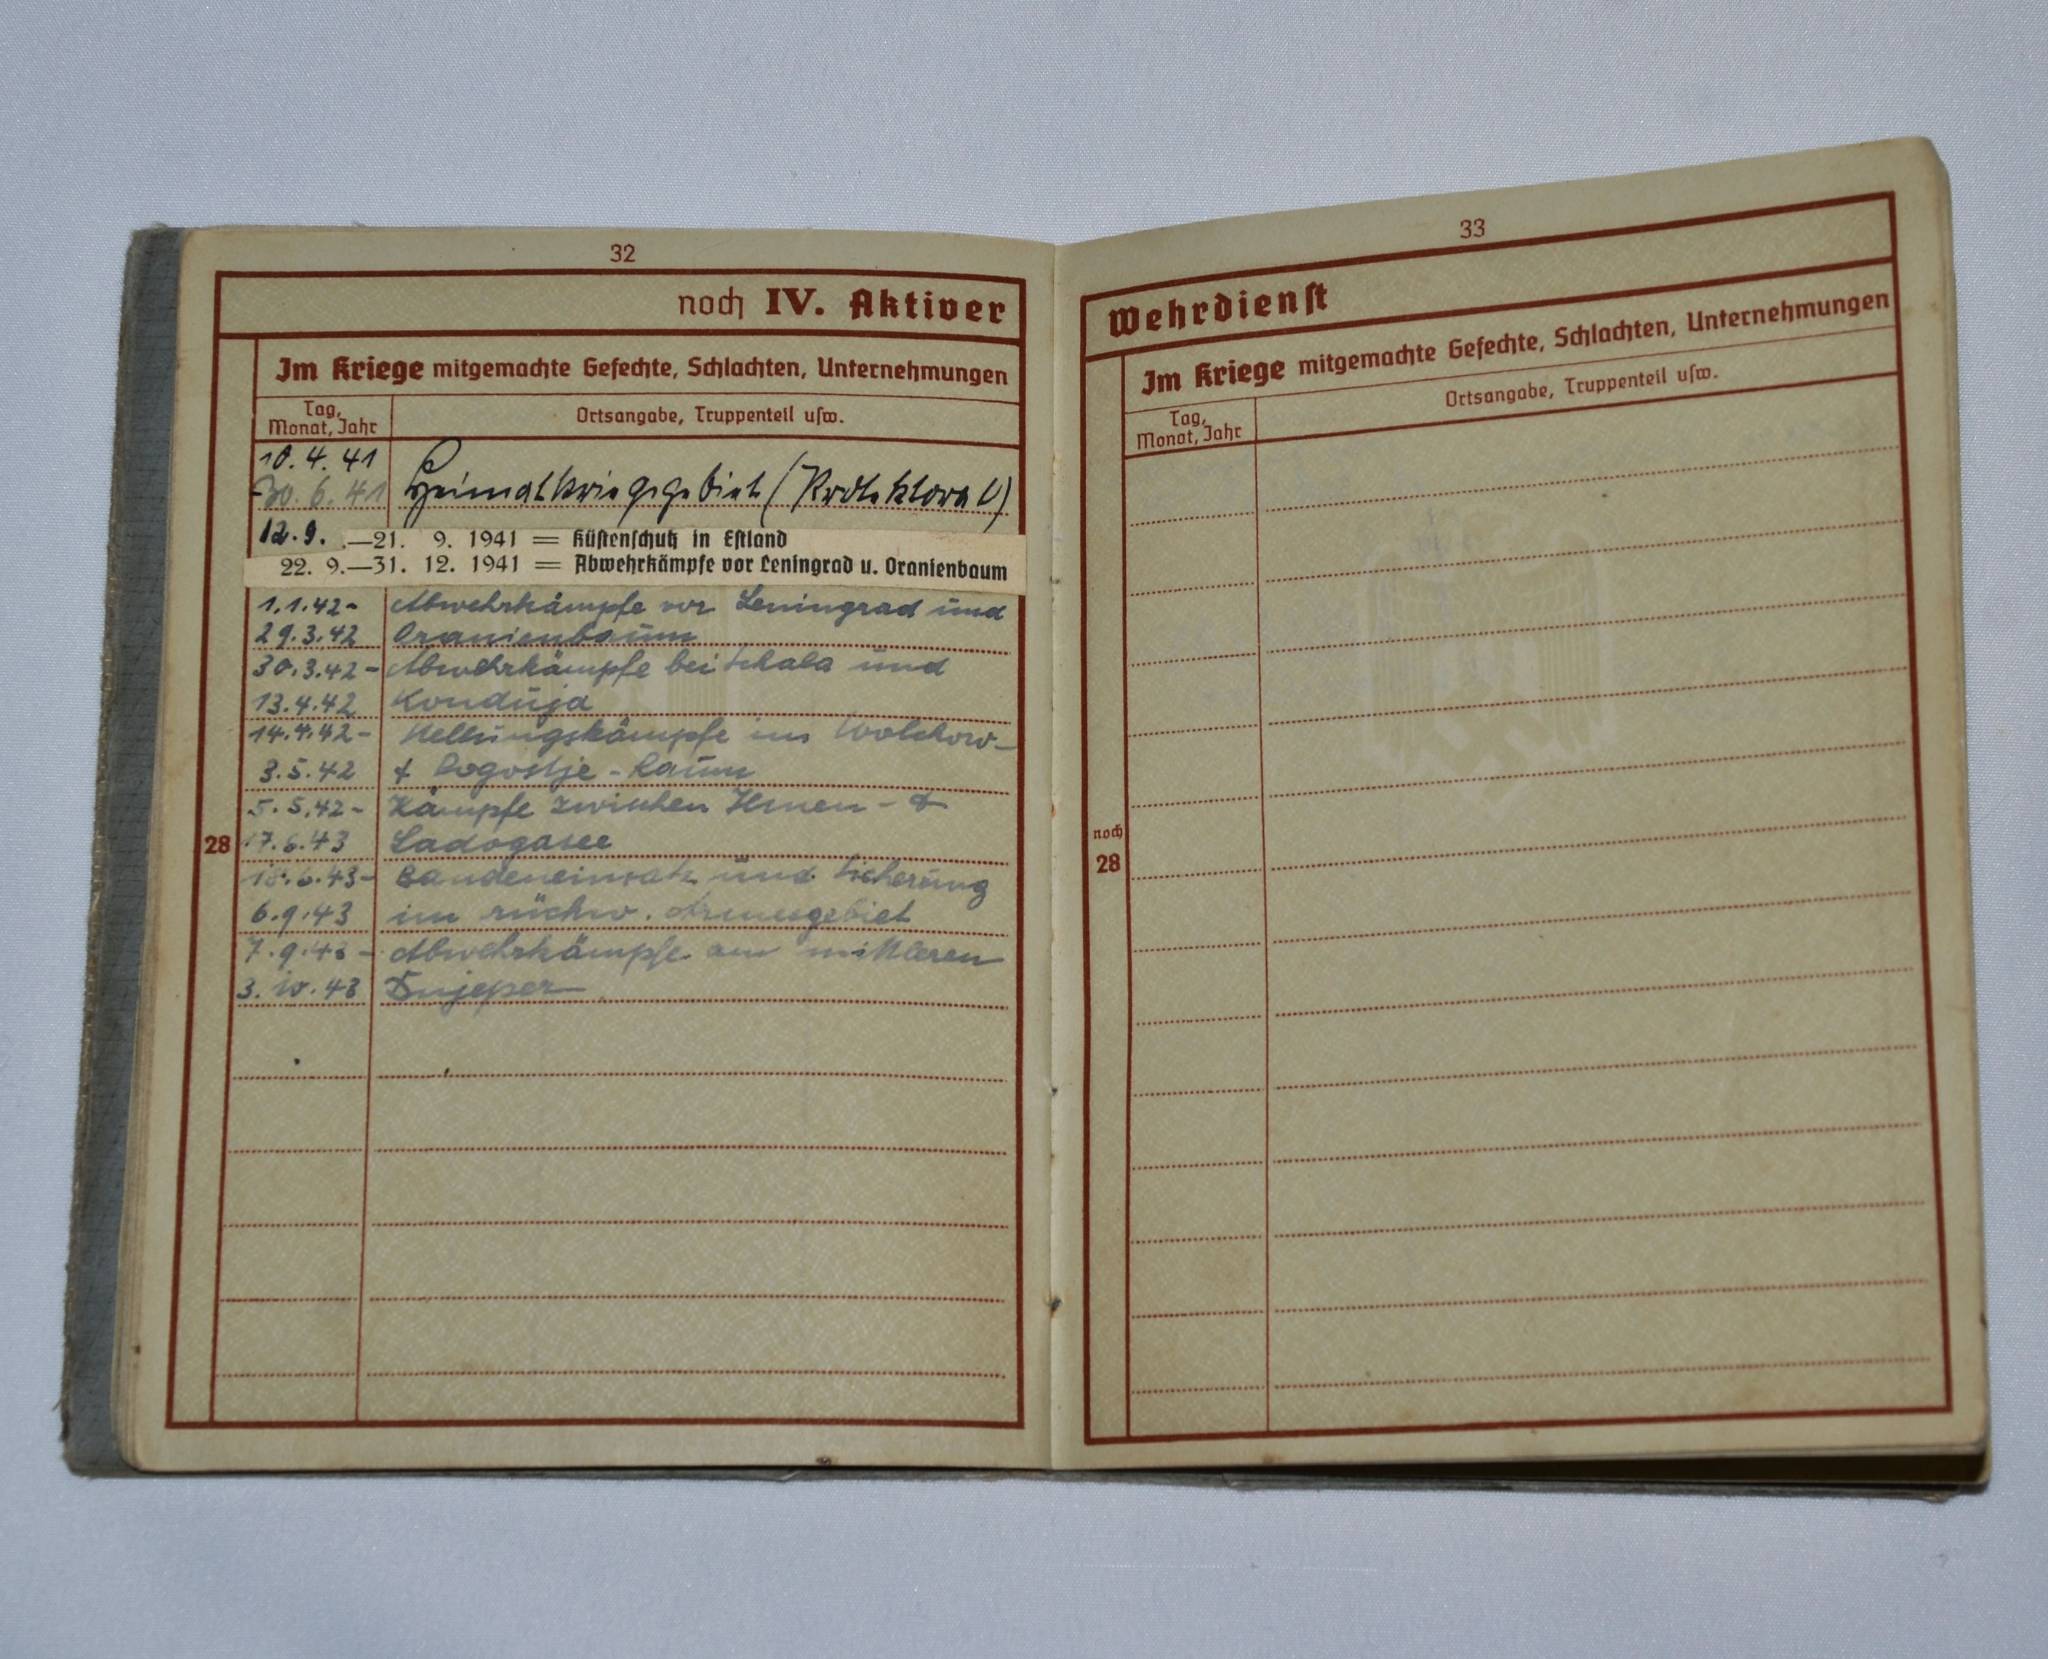 32
noch IV. Aktiver
Im Kriege mitgemachte Gefechte, Schlachten, Unternehmungen
Tag, Monat, Jahr
Ortsangabe, Truppenteil usw.
10.4.41
-30.6.41 Heimatkriegsgebiet (Protektorat)
12.9. .—21. 9. 1941 = Küstenschutz in Estland
22. 9.—31. 12. 1941 = Abwehrkämpfe vor Leningrad u. Oranienbaum
1.1.42- Abwehrkämpfe vor Leningrad und
29.3.42 Oranienbaum
30.3.42- Abwehrkämpfe bei Schala und
13.4.42 Konduja
14.4.42- Stellungskämpfe im Wolchow-
3.5.42 + Pogostje-Raum
5.5.42- Kämpfe zwischen Ilmen- &
28 17.6.43 Ladogasee
18.6.43- Bandeneinsatz und Sicherung
6.9.43 im rückw. Armeegebiet
7.9.43- Abwehrkämpfe am mittleren
3.10.43 Dnjeper
33
Wehrdienst
Im Kriege mitgemachte Gefechte, Schlachten, Unternehmungen
Tag, Monat, Jahr
Ortsangabe, Truppenteil usw.
noch
28